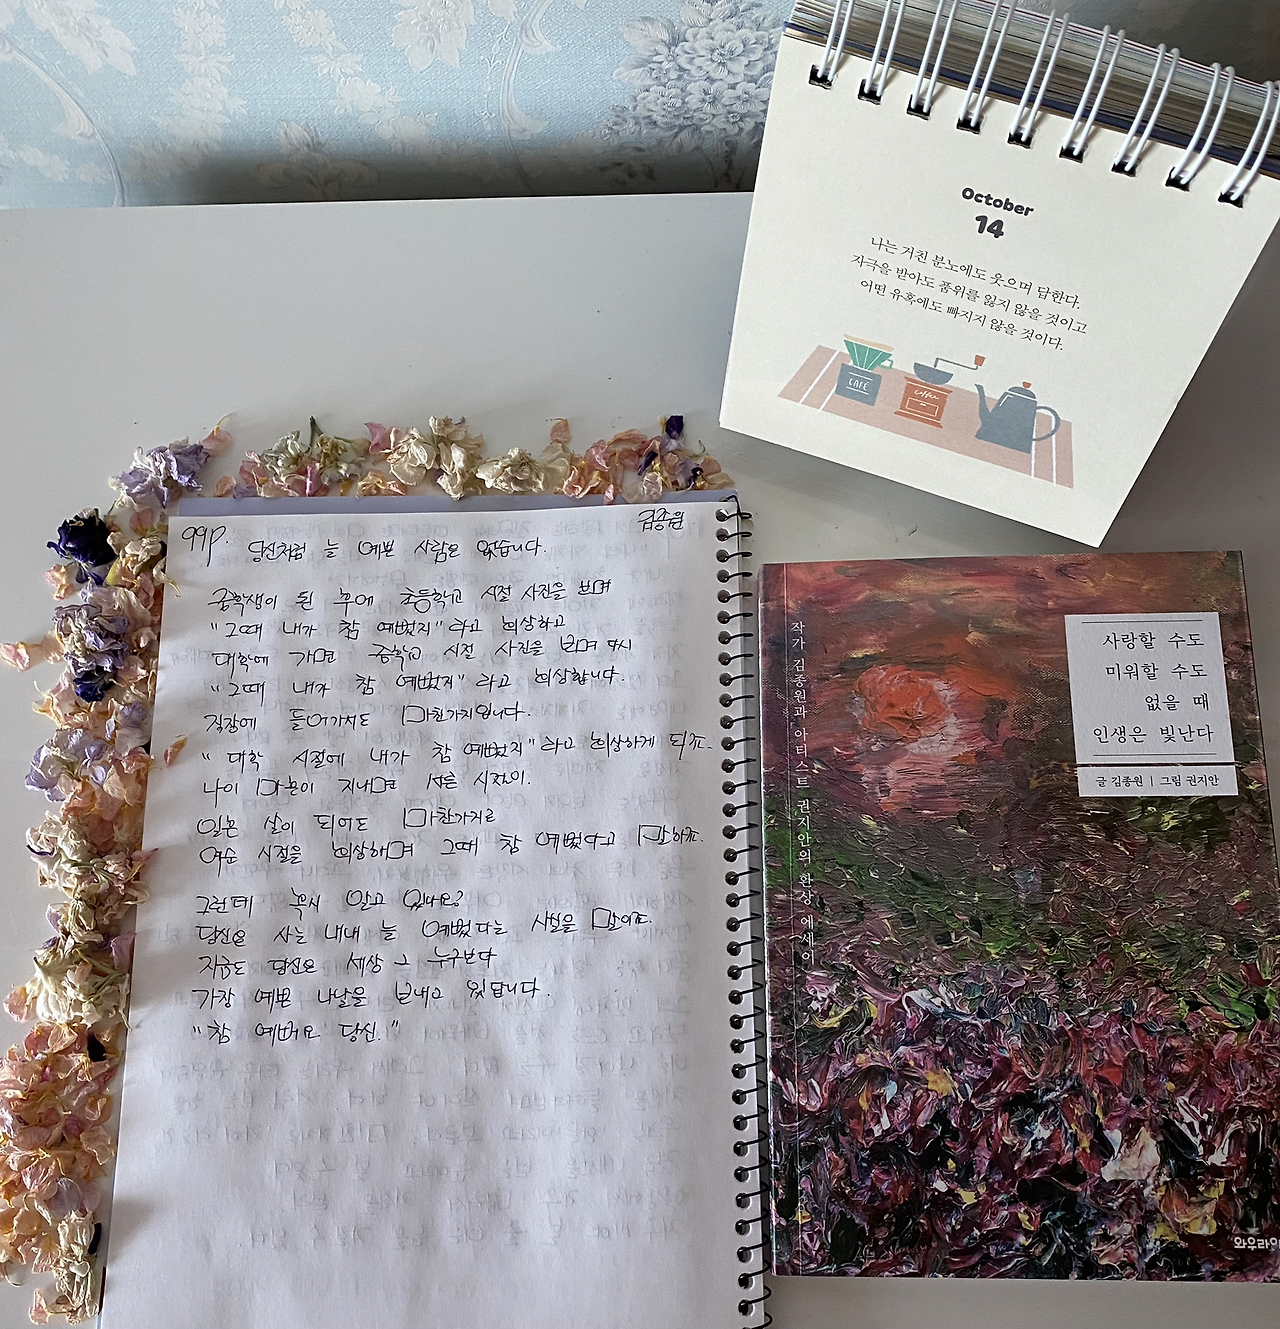 October
14
나는 거친 분노에도 웃으며 답한다.
자극을 받아도 품위를 잃지 않을 것이고
어떤 유혹에도 빠지지 않을 것이다.
CAFE
coffee
99p.
김종원
당신처럼 늘 예쁜 사람은 없습니다.
중학생이 된 후에 초등학교 시절 사진을 보며
"그때 내가 참 예뻤지"라고 회상하고
대학에 가면 중학교 시절 사진을 보며 다시
"그때 내가 참 예뻤지"라고 회상합니다.
직장에 들어가서도 마찬가지입니다.
"대학 시절에 내가 참 예뻤지"라고 회상하게 되죠.
나이 마흔이 지나면 서른 시절이.
일흔 살이 되어도 마찬가지로
예순 시절을 회상하며 그때 참 예뻤다고 말하죠.
그런데 혹시 알고 있나요?
당신은 사는 내내 늘 예뻤다는 사실을 말이죠.
지금도 당신은 세상 그 누구보다
가장 예쁜 나날을 보내고 있답니다.
"참 예뻐요 당신."
작가 김종원과 아티스트 권지안의 환상 에세이
사랑할 수도
미워할 수도
없을 때
인생은 빛난다
글 김종원 | 그림 권지안
와우라이